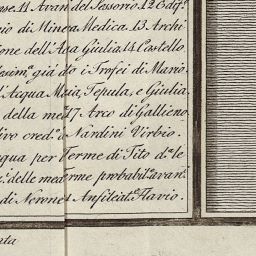 se. 11 Avan. del Tessorio. 12 Edif.º
io di Minea Medica. 13 Archi
ione dell'Acq Giulia 14 Castello
esim.ª già do i Trofei di Mario.
l'Acqua Mzia, Tepula, e Giulia
della me 17 Arco di Gallieno.
ivo cred.º Nardini Virbio.
qua per Terme di Tito d.ª le
.ª delle med rme probabil.e avan.
di Nerone Anfileat.º Flavio.
nta